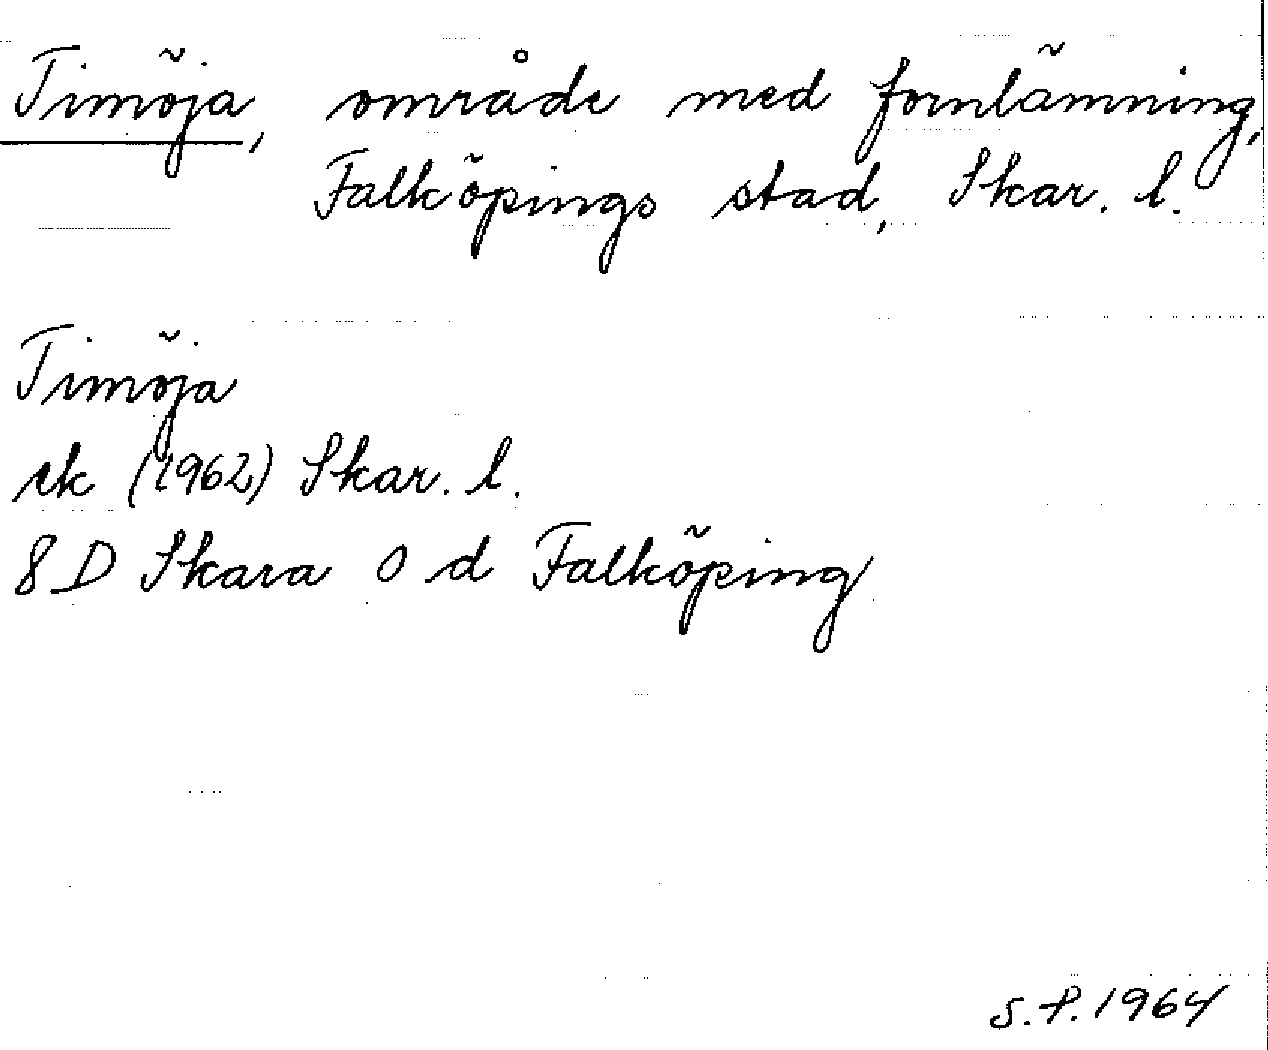 Timöja, område med fornlämning,
Falköpings stad, Skar. l.
Timöja
rk (1962) Skar. l.
8 D Skara 0 d Falköping
S.P. 1964